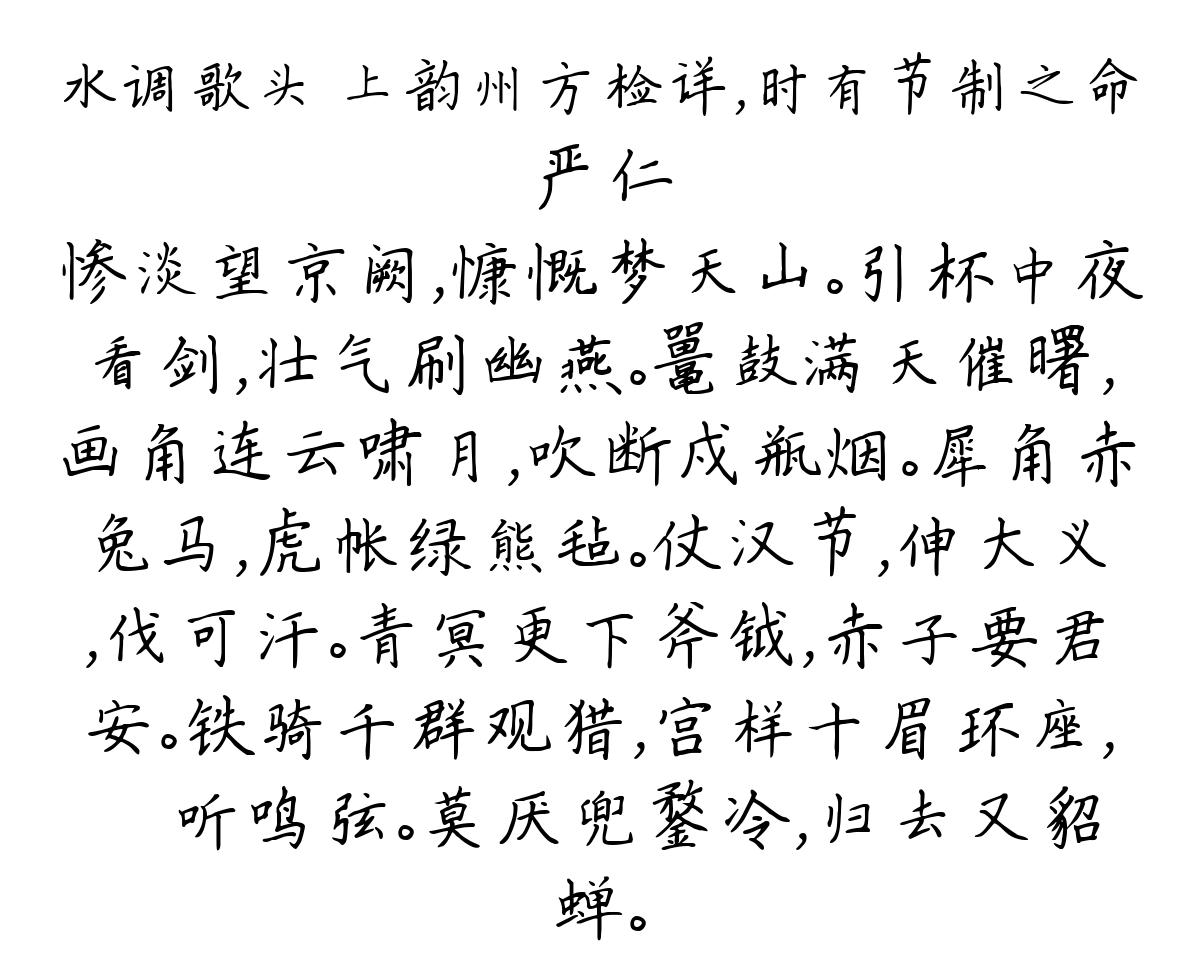 水调歌头 上韵州方检详,时有节制之命
严仁
惨淡望京阙,慷慨梦天山。引杯中夜
看剑,壮气刷幽燕。鼍鼓满天催曙,
画角连云啸月,吹断戍瓶烟。犀角赤
兔马,虎帐绿熊毡。仗汉节,伸大义
,伐可汗。青冥更下斧钺,赤子要君
安。铁骑千群观猎,宫样十眉环座,
听鸣弦。莫厌兜鍪冷,归去又貂
蝉。